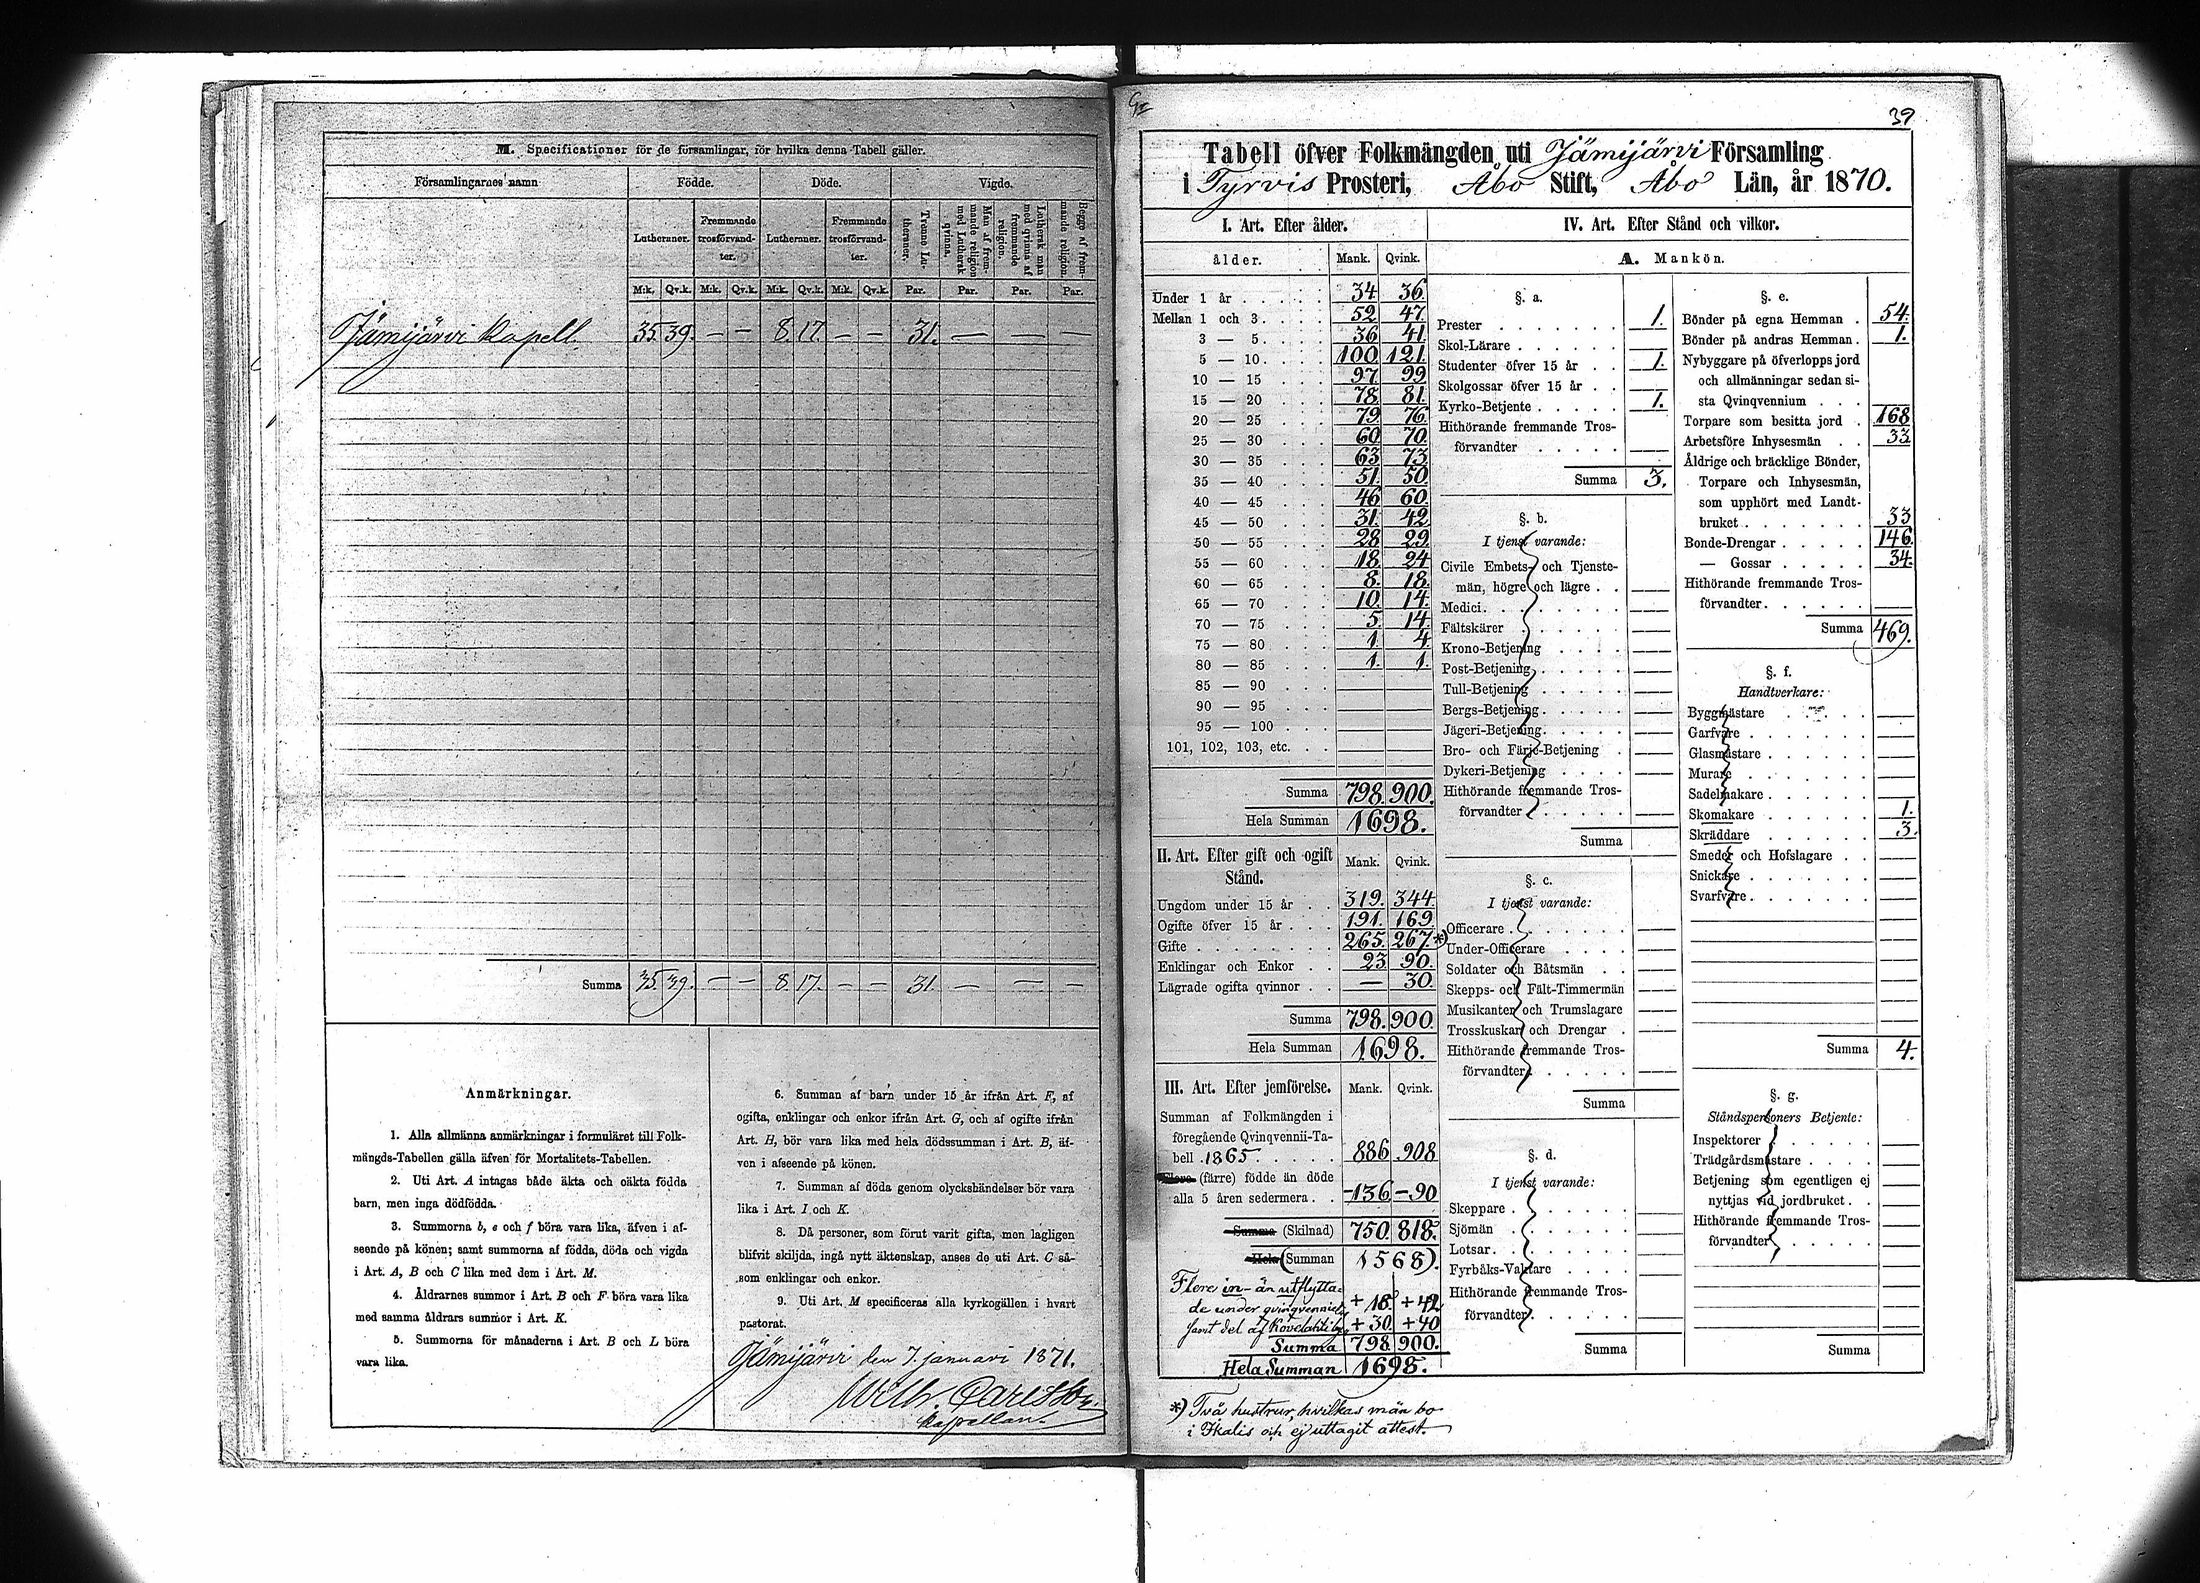 M. Specificationer för de församlingar, för hvilka denna Tabell gäller.
Församlingarnes namn
Födde. Döde. Vigde.
Lutheraner. Fremmande trosförvandter. Lutheraner. Fremmande trosförvandter. Tvenne Lutheraner. Man af fremmande religion med Luthersk qvinna. Luthersk man med qvinna af fremmande religion. Begge af fremmande religion.
M.k. Qv.k. M.k. Qv.k. M.k. Qv.k. M.k. Qv.k. Par. Par. Par. Par.
Jämijärvi Kapell. 35. 39. — — 8. 17. — — 31. — — —
Summa 35. 39. — — 8. 17. — — 31. — — —
Anmärkningar.
1. Alla allmänna anmärkningar i formuläret till Folk-
mängds-Tabellen gälla äfven för Mortalitets-Tabellen.
2. Uti Art. A intagas både äkta och oäkta födda
barn, men inga dödfödda.
3. Summorna b, e och f böra vara lika, äfven i af-
seende på könen; samt summorna af födda, döda och vigda
i Art. A, B och C lika med dem i Art. M.
4. Åldrarnes summor i Art. B och F böra vara lika
med samma åldrars summor i Art. K.
5. Summorna för månaderna i Art. B och L böra
vara lika.
6. Summan af barn under 15 år ifrån Art. F, af
ogifta, enklingar och enkor ifrån Art. G, och af ogifte ifrån
Art. H, bör vara lika med hela dödssumman i Art. B, äf-
ven i afseende på könen.
7. Summan af döda genom olyckshändelser bör vara
lika i Art. I och K.
8. Då personer, som förut varit gifta, men lagligen
blifvit skiljda, ingå nytt äktenskap, anses de uti Art. C så-
som enklingar och enkor.
9. Uti Art. M specificeras alla kyrkogällen i hvart
pastorat.
Jämijärvi den 7. januari 1871.
Wilh. Carlsson.
Kapellan.
39
Tabell öfver Folkmängden uti Jämijärvi Församling
i Tyrvis Prosteri, Åbo Stift, Åbo Län, år 1870.
I. Art. Efter ålder.
ålder. Mank. Qvink.
Under 1 år 34. 36.
Mellan 1 och 3. 52 47.
3 — 5. 36 41.
5 — 10. 100. 121.
10 — 15 97. 99
15 — 20 78. 81.
20 — 25 79. 76
25 — 30 60 70.
30 — 35 63 73.
35 — 40 51. 50.
40 — 45 46 60.
45 — 50 31. 42
50 — 55 28 29.
55 — 60 18. 24
60 — 65 8. 18.
65 — 70 10. 14.
70 — 75 5. 14.
75 — 80 1. 4.
80 — 85 1. 1.
85 — 90 — —
90 — 95 — —
95 — 100 — —
101, 102, 103, etc. — —
Summa 798. 900.
Hela Summan 1698.
II. Art. Efter gift och ogift
Stånd. Mank. Qvink.
Ungdom under 15 år 319. 344.
Ogifte öfver 15 år 191. 169.
Gifte 265. 267.*)
Enklingar och Enkor 23. 90.
Lägrade ogifta qvinnor — 30.
Summa 798. 900.
Hela Summan 1698.
III. Art. Efter jemförelse. Mank. Qvink.
Summan af Folkmängden i
föregående Qvinqvennii-Ta-
bell 1865. 886 908
Flere (färre) födde än döde
alla 5 åren sedermera -136 -90
Summa (Skilnad) 750. 818.
Hela (Summan 1568).
Flere in- än utflytta-
de under qvinqvenniet +18. +42
samt del af +30. +40
Summa 798. 900.
Hela Summan 1698.
*) Två hustrur, hvilkas män bo
i Ikalis och ej uttagit attest.
IV. Art. Efter Stånd och vilkor.
A. Mankön.
§. a.
Prester 1.
Skol-Lärare —
Studenter öfver 15 år 1.
Skolgossar öfver 15 år —
Kyrko-Betjente 1.
Hithörande fremmande Tros-
förvandter —
Summa 3.
§. b.
I tjenst varande:
Civile Embets- och Tjenste-
män, högre och lägre —
Medici —
Fältskärer —
Krono-Betjening —
Post-Betjening —
Tull-Betjening —
Bergs-Betjening —
Jägeri-Betjening —
Bro- och Färje-Betjening —
Dykeri-Betjening —
Hithörande fremmande Tros-
förvandter —
Summa
§. c.
I tjenst varande:
Officerare —
Under-Officerare —
Soldater och Båtsmän —
Skepps- och Fält-Timmermän —
Musikanter och Trumslagare —
Trosskuskar och Drengar —
Hithörande fremmande Tros-
förvandter —
Summa
§. d.
I tjenst varande:
Skeppare —
Sjömän —
Lotsar —
Fyrbåks-Vaktare —
Hithörande fremmande Tros-
förvandter —
Summa
§. e.
Bönder på egna Hemman 54.
Bönder på andras Hemman 1.
Nybyggare på öfverlopps jord
och allmänningar sedan si-
sta Qvinqvennium
Torpare som besitta jord 168
Arbetsföre Inhysesmän 33.
Åldrige och bräcklige Bönder,
Torpare och Inhysesmän,
som upphört med Landt-
bruket 33
Bonde-Drengar 146.
— Gossar 34.
Hithörande fremmande Tros-
förvandter —
Summa 469.
§. f.
Handtverkare:
Byggmästare —
Garfvare —
Glasmästare —
Murare —
Sadelmakare —
Skomakare 1.
Skräddare 3.
Smeder och Hofslagare —
Snickare —
Svarfvare —
Summa 4.
§. g.
Ståndspersoners Betjente:
Inspektorer —
Trädgårdsmästare —
Betjening som egentligen ej
nyttjas vid jordbruket —
Hithörande fremmande Tros-
förvandter —
Summa